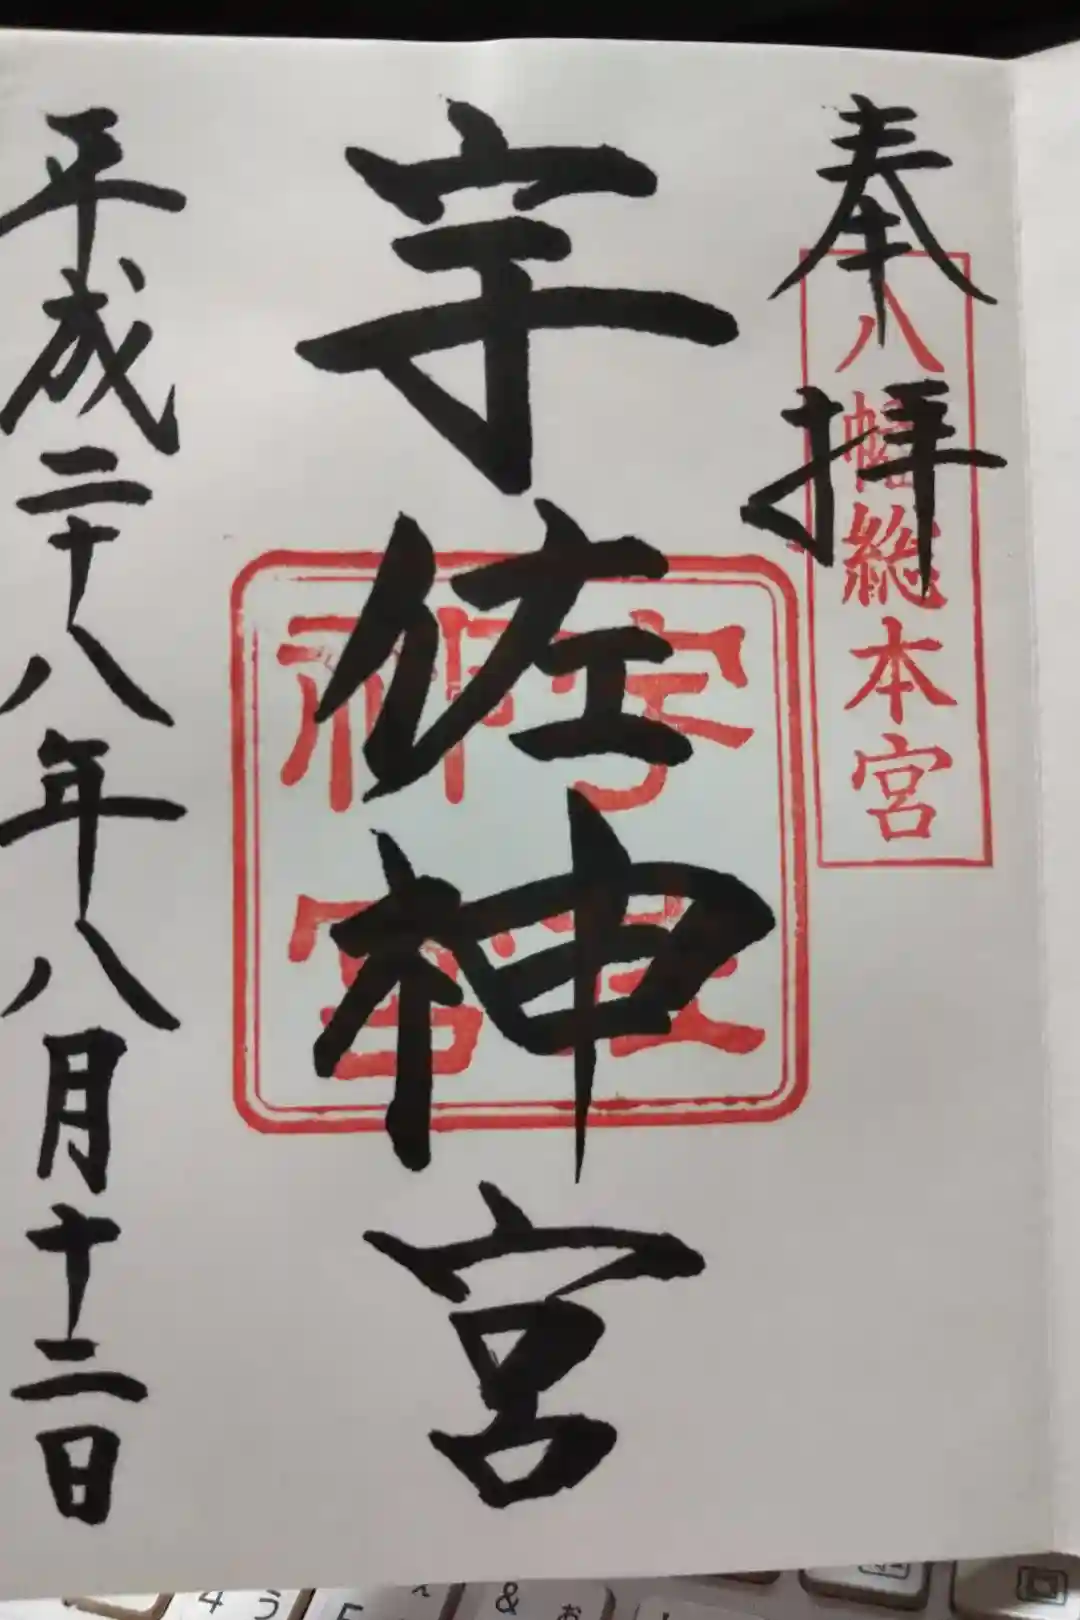 奉拝
八幡総本宮
宇佐神宮
宇佐神宮
平成二十八年八月十二日
4 う
5 え
& お